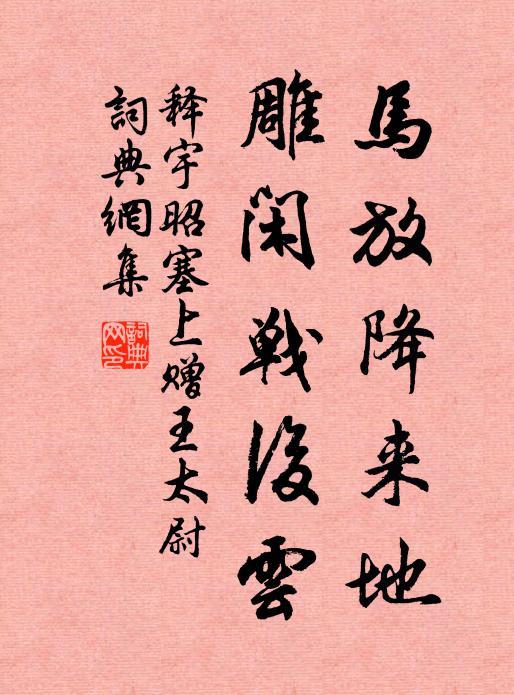 馬放降来地
雕閑戰後雲
释宇昭塞上赠王太尉
詞典網集
詞典網印